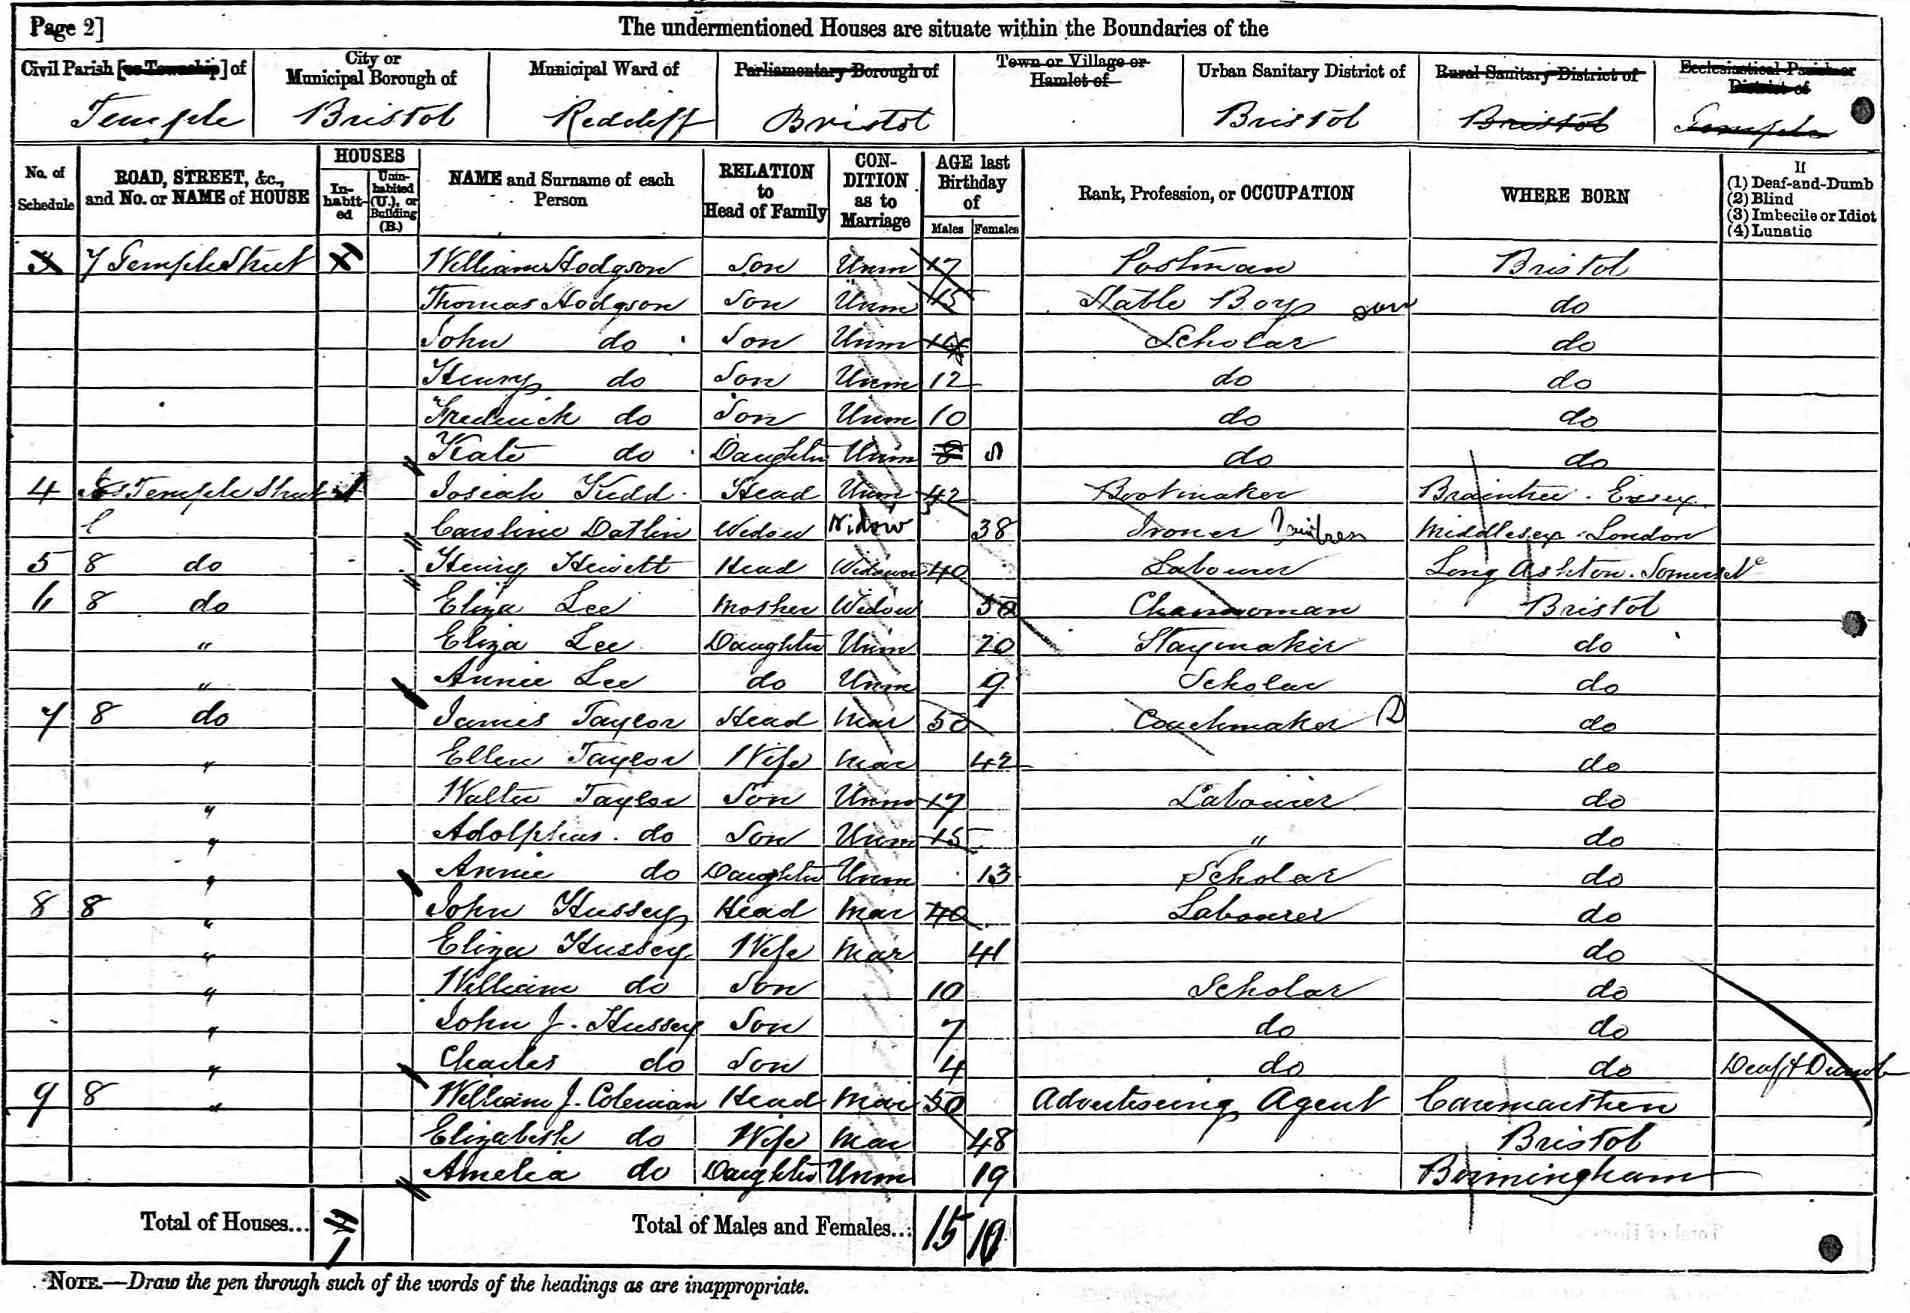 Page 2] The undermentioned Houses are situate within the Boundaries of the
Civil Parish [or Township] of City or Municipal Borough of Municipal Ward of Parliamentary Borough of Town or Village or Hamlet of Urban Sanitary District of Rural Sanitary District of Ecclesiastical Parish or District of
Temple Bristol Redcliff Bristol Bristol Bristol Temple
No. of Schedule ROAD, STREET, &c., and No. or NAME of HOUSE HOUSES Inhabited Uninhabited (U.), or Building (B.) NAME and Surname of each Person RELATION to Head of Family CONDITION as to Marriage AGE last Birthday of Males Females Rank, Profession, or OCCUPATION WHERE BORN If (1) Deaf-and-Dumb (2) Blind (3) Imbecile or Idiot (4) Lunatic
3 7 Temple Street William Hodgson Son Unm 17 Postman Bristol
Thomas Hodgson Son Unm 15 Stable Boy do
John do Son Unm 14 Scholar do
Henry do Son Unm 12 do do
Frederick do Son Unm 10 do do
Kate do Daughter Unm 8 8 do do
4 Temple Street 1 Josiah Kidd Head Unm 42 Bootmaker Braintree. Essex
Caroline Datlin Widow Widow 38 Ironer Middlesex London
5 8 do Henry Hewitt Head Widower 40 Labourer Long Ashton. Somerset
6 8 do Eliza Lee Mother Widow 50 Charwoman Bristol
" Eliza Lee Daughter Unm 20 Staymaker do
" Annie Lee do Unm 9 Scholar do
7 8 do James Taylor Head Mar 50 Coachmaker do
" Ellen Taylor Wife Mar 42 do
" Walter Taylor Son Unm 17 Labourer do
" Adolphus do Son Unm 15 " do
" Annie do Daughter Unm 13 Scholar do
8 8 " John Hussey Head Mar 40 Labourer do
" Eliza Hussey Wife Mar 41 do
" William do Son 10 Scholar do
" John J. Hussey Son 7 do do
" Charles do Son 4 do do Deaf & Dumb
9 8 " William J. Coleman Head Mar 50 Advertiseing Agent Caermarthen
Elizabeth do Wife Mar 48 Bristol
Amelia do Daughter Unm 19 Birmingham
Total of Houses... 1 Total of Males and Females... 15 10
NOTE.—Draw the pen through such of the words of the headings as are inappropriate.